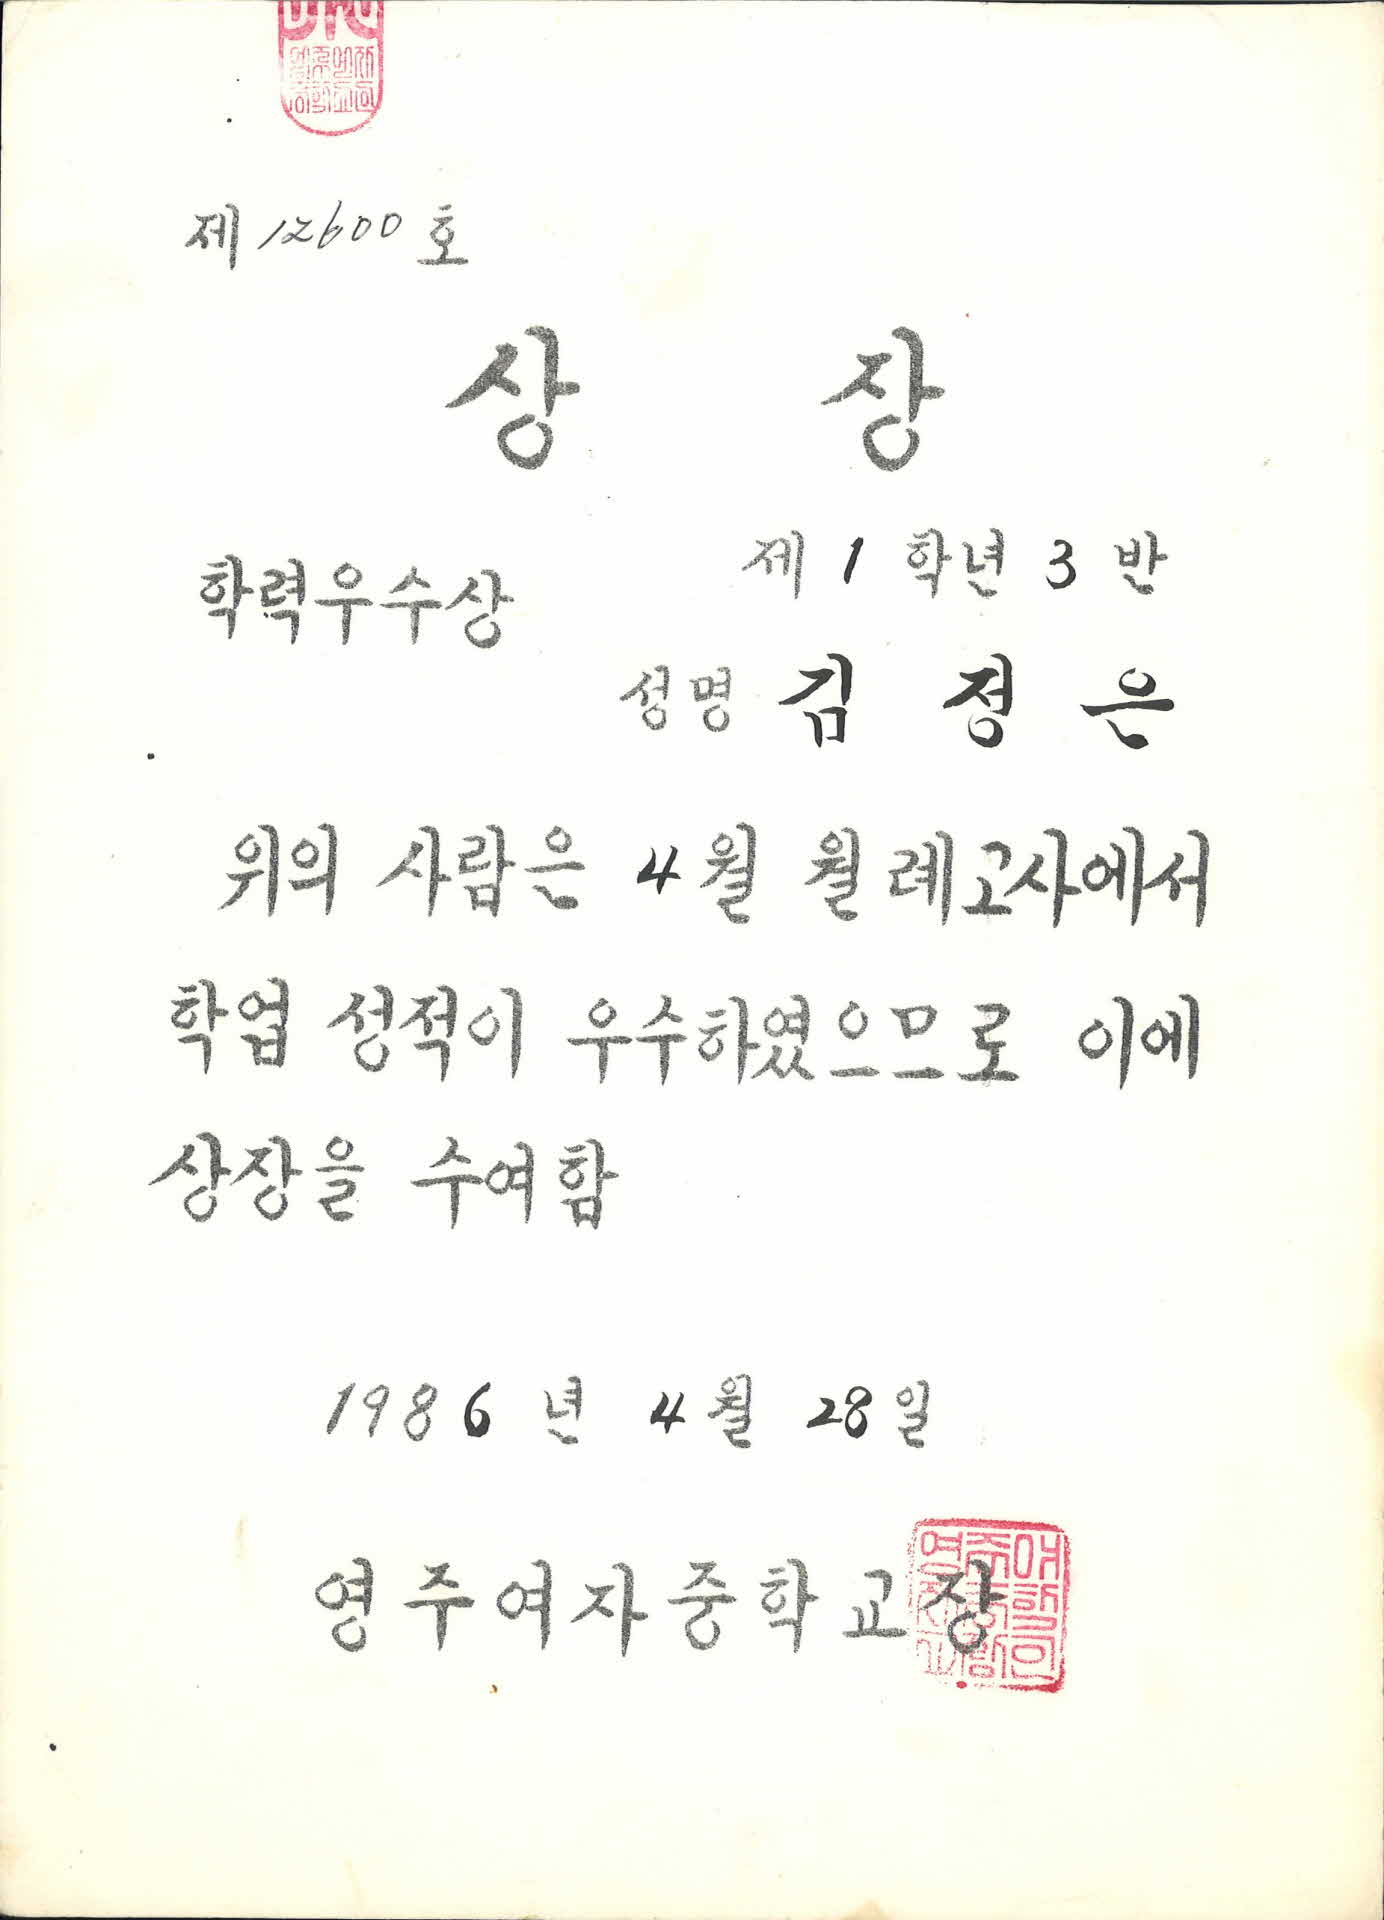 제 12600 호
상 장
학력우수상
제 1 학년 3 반
성명 김 정 은
위의 사람은 4월 월례고사에서
학업 성적이 우수하였으므로 이에
상장을 수여함
1986 년 4 월 28 일
영주여자중학교장